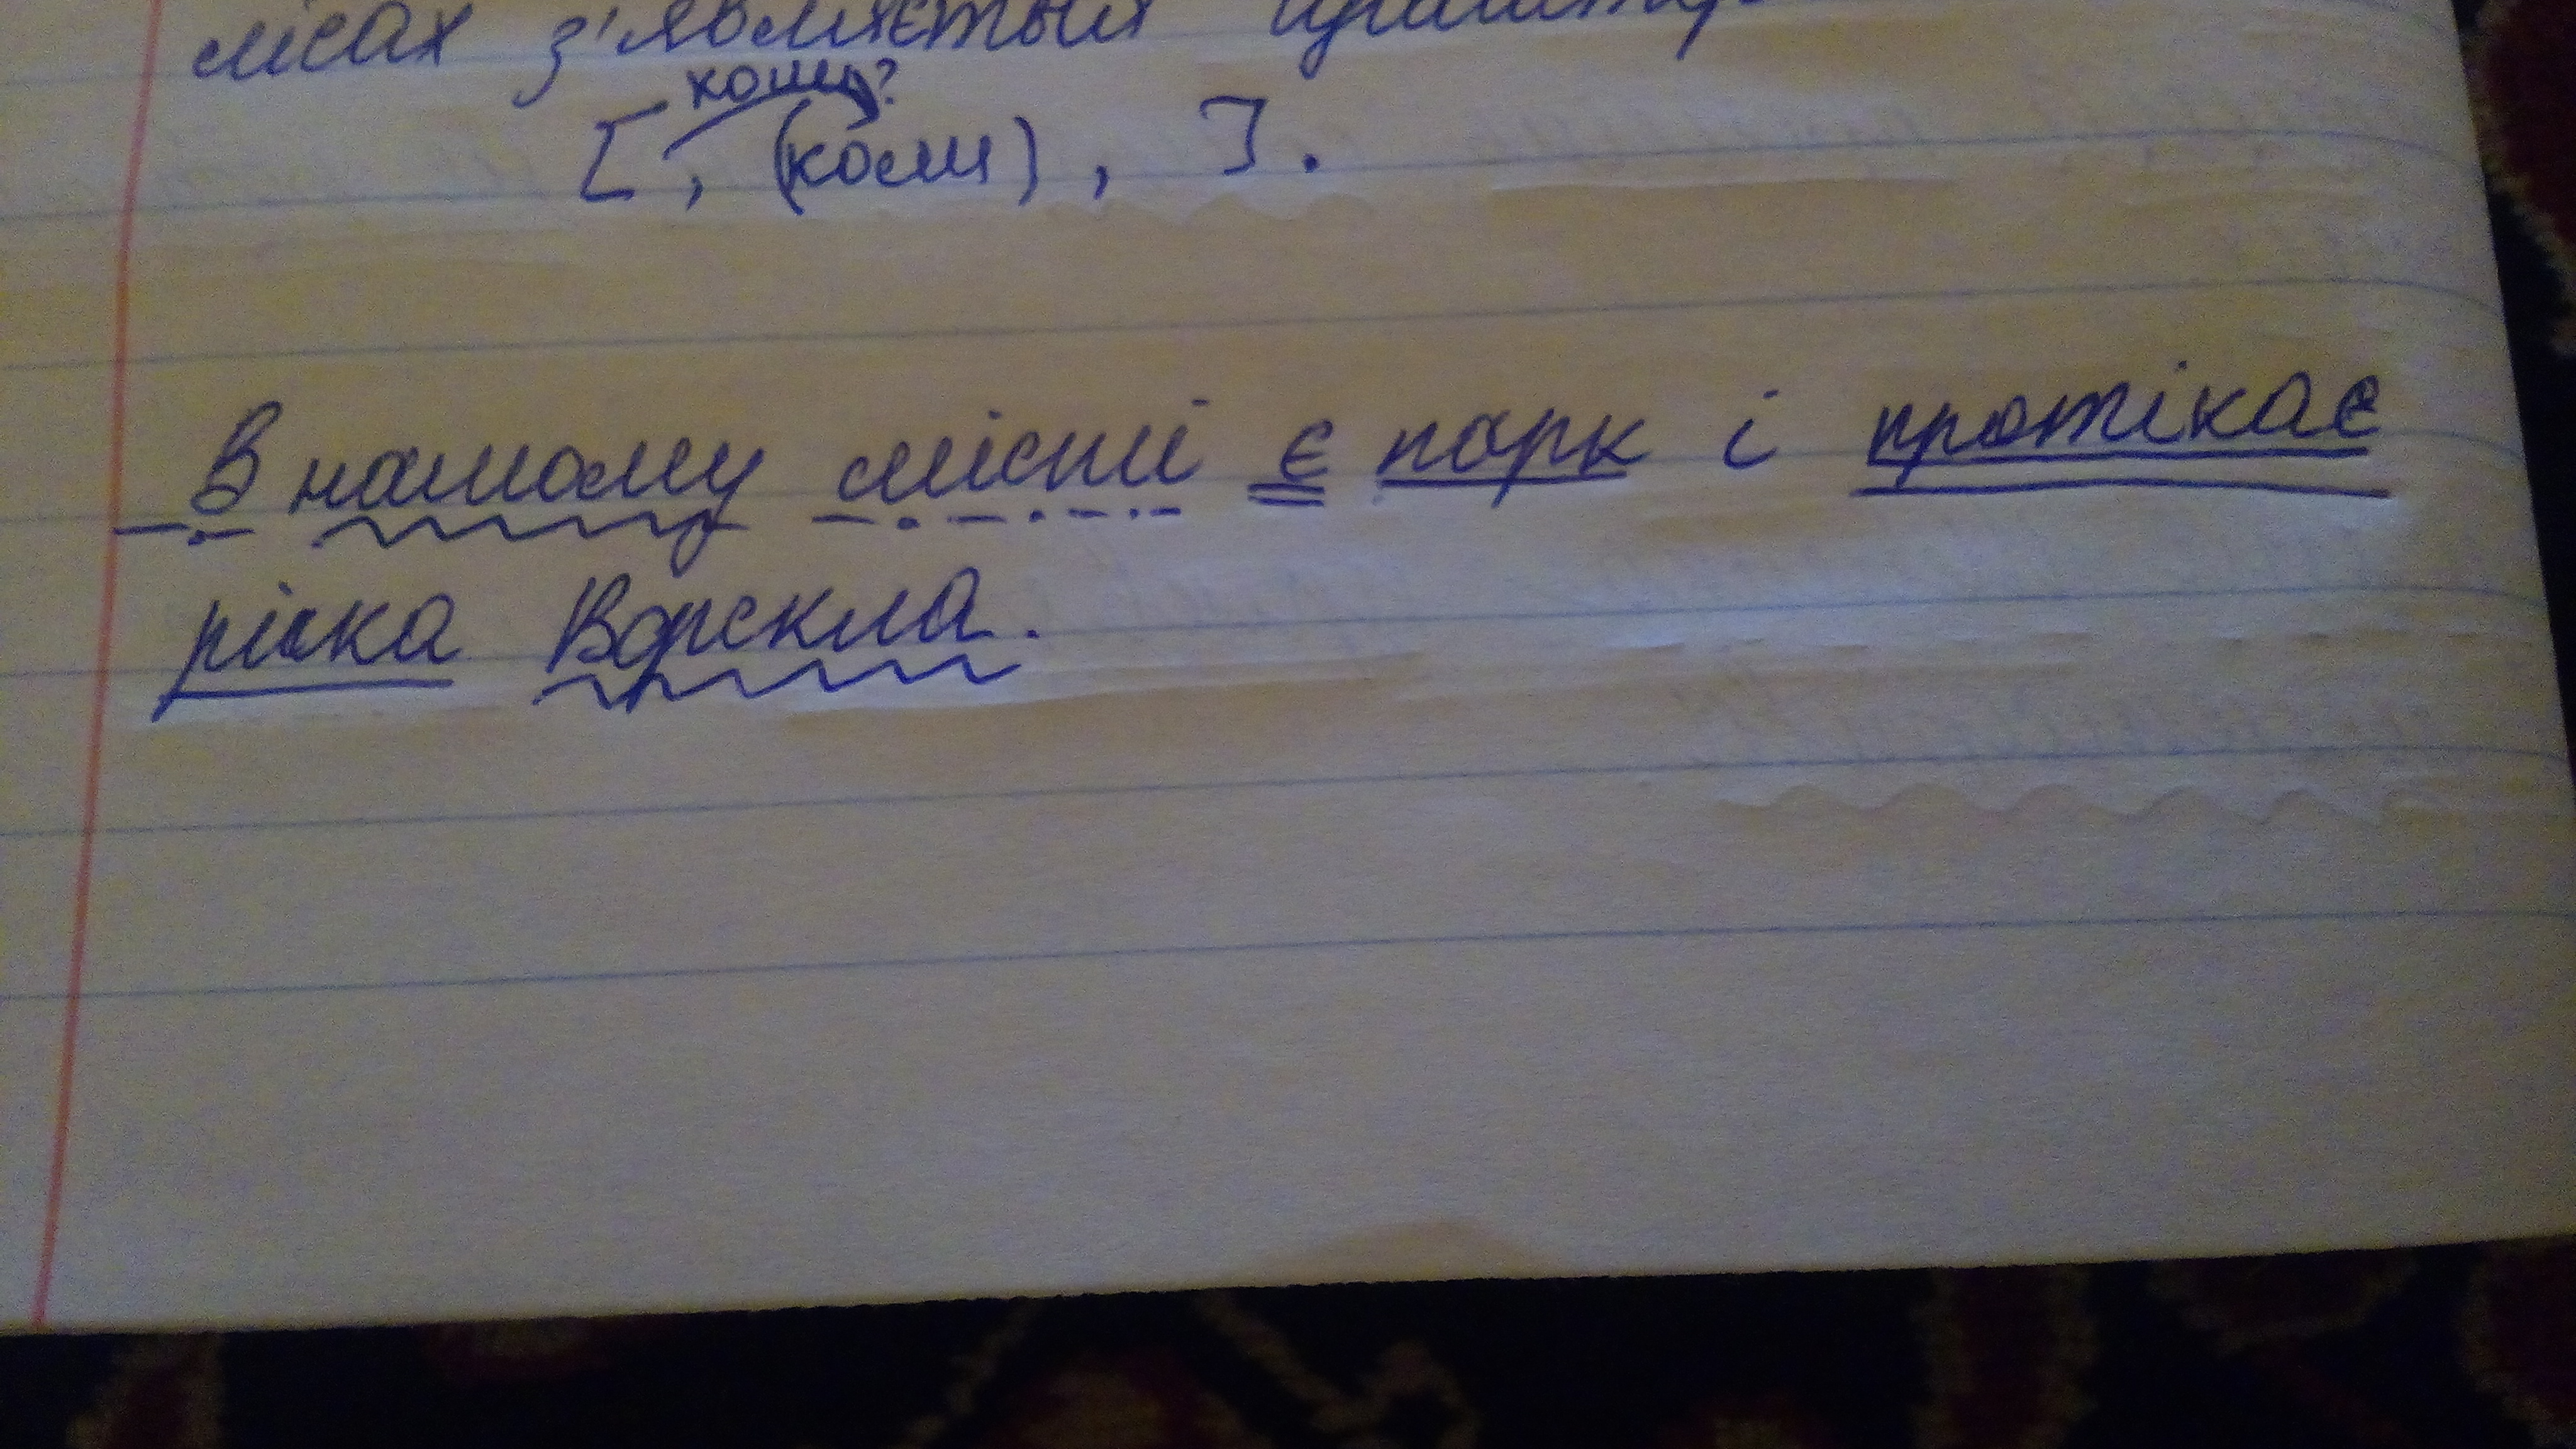 лісах з'являється
коли?
[ , (коли) , ].
В нашому місті є парк і протікає
річка Ворскла.